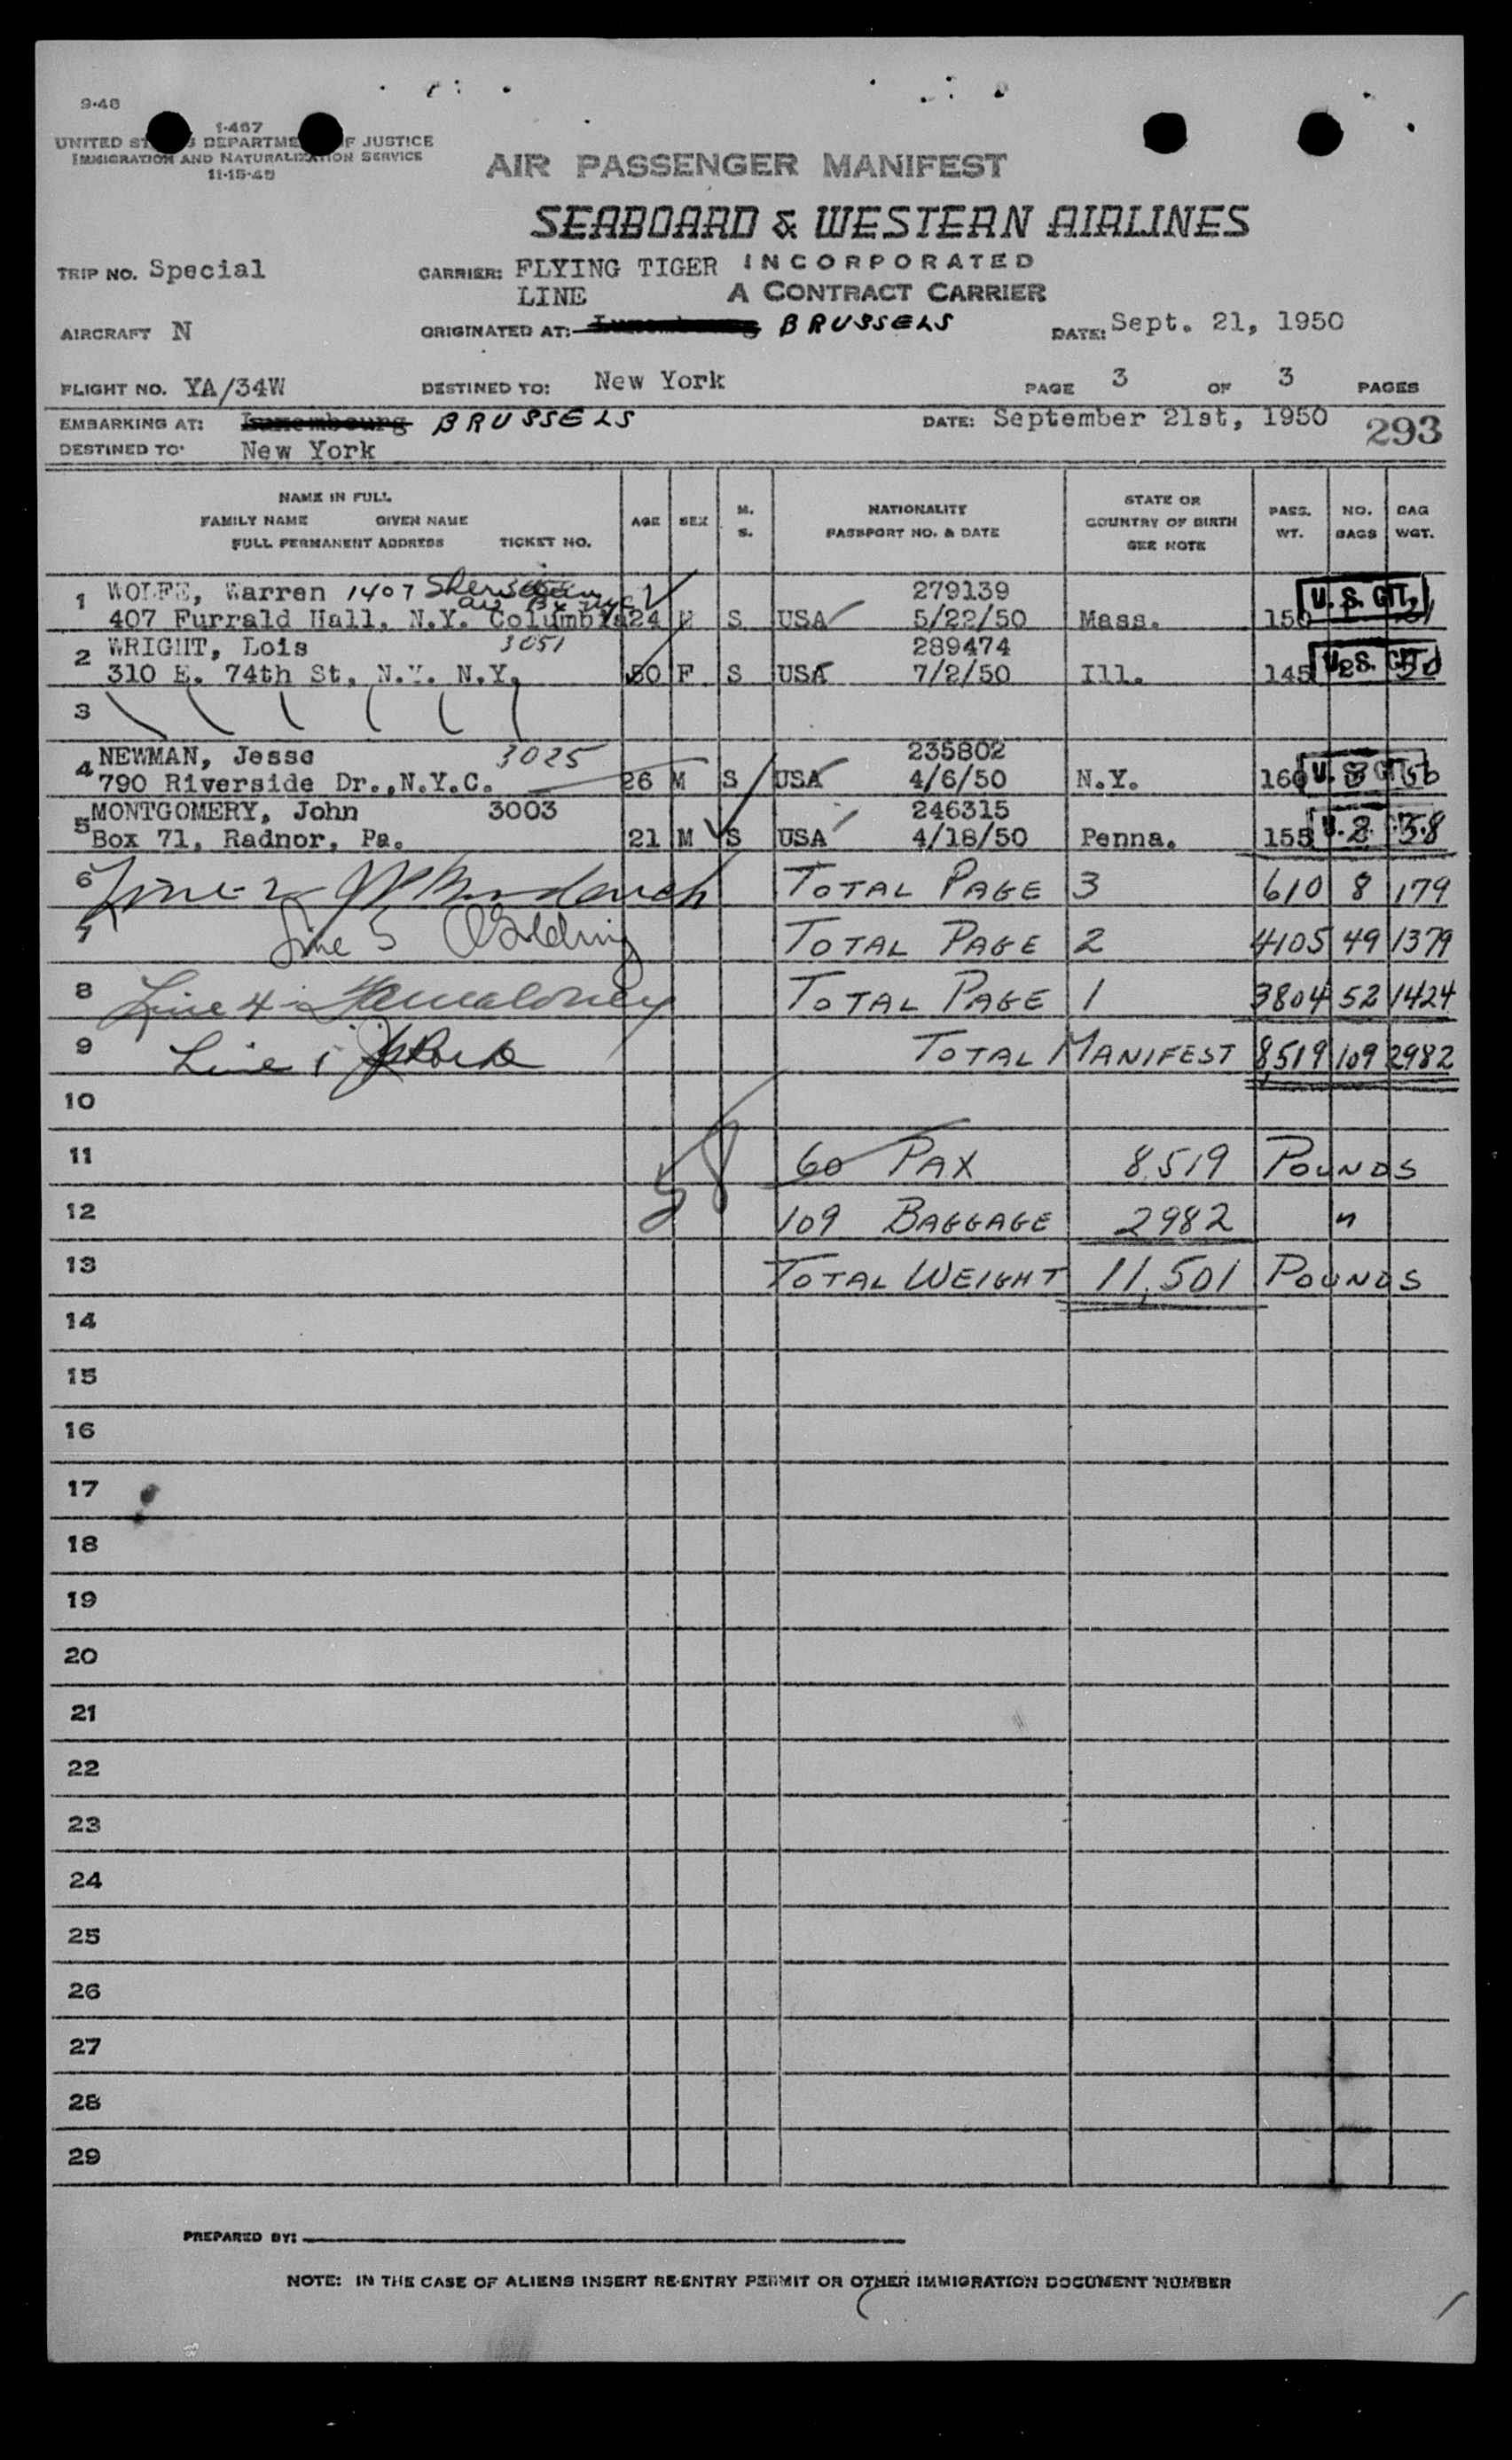 9-48
1-467
UNITED DEPARTME F JUSTICE
IMMIGRATION AND NATURALIZATION SERVICE
11-15-45
AIR PASSENGER MANIFEST
SEABOARD & WESTERN AIRLINES
INCORPORATED
A CONTRACT CARRIER
TRIP NO. Special CARRIER: FLYING TIGER LINE
AIRCRAFT N ORIGINATED AT: Luxembourg BRUSSELS DATE: Sept. 21, 1950
FLIGHT NO. YA/34W DESTINED TO: New York PAGE 3 OF 3 PAGES
EMBARKING AT: Luxembourg BRUSSELS DATE: September 21st, 1950 293
DESTINED TO: New York
NAME IN FULL
FAMILY NAME GIVEN NAME
FULL PERMANENT ADDRESS TICKET NO.
AGE SEX M. S.
NATIONALITY
PASSPORT NO. & DATE
STATE OR
COUNTRY OF BIRTH
SEE NOTE
PASS. WT. NO. BAGS BAG WGT.
1 WOLFE, Warren 1407 279139 U.S. CIT.
407 Furrald Hall, N.Y. Columbia 24 M S USA 5/22/50 Mass. 150
2 WRIGHT, Lois 3051 289474
310 E. 74th St, N.Y. N.Y. 50 F S USA 7/2/50 Ill. 145 U.S. CIT.
3
4 NEWMAN, Jesse 3025 235802
790 Riverside Dr.,N.Y.C. 26 M S USA 4/6/50 N.Y. 160 U.S. CIT.
5 MONTGOMERY, John 3003 246315
Box 71, Radnor, Pa. 21 M S USA 4/18/50 Penna. 155 2 38
6 TOTAL PAGE 3 610 8 179
7 Line 5 TOTAL PAGE 2 4105 49 1379
8 Line 4 TOTAL PAGE 1 3804 52 1424
9 Line 1 TOTAL MANIFEST 8,519 109 2982
10
11 58 60 PAX 8,519 POUNDS
12 109 BAGGAGE 2982 "
13 TOTAL WEIGHT 11,501 POUNDS
14
15
16
17
18
19
20
21
22
23
24
25
26
27
28
29
PREPARED BY:
NOTE: IN THE CASE OF ALIENS INSERT RE-ENTRY PERMIT OR OTHER IMMIGRATION DOCUMENT NUMBER